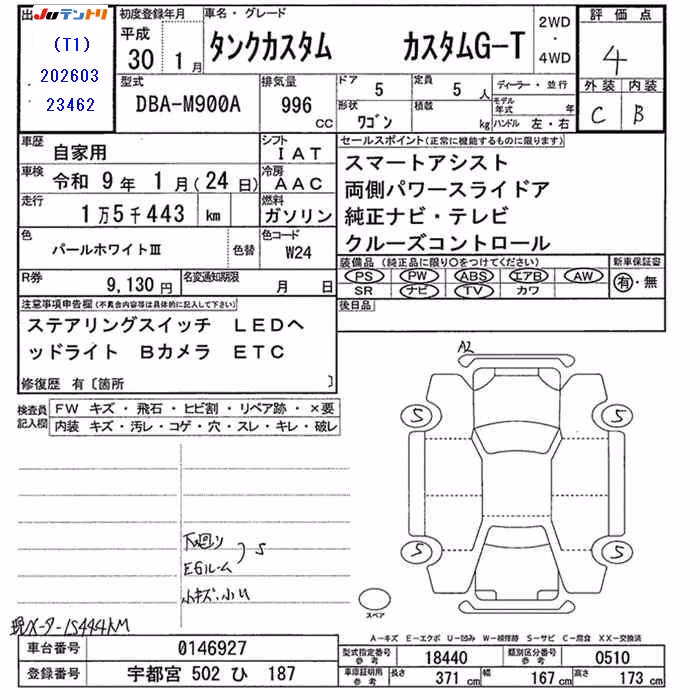 出 JUテントリ
(T1)
202603
23462
初度登録年月
平成
30 1月
車名・グレード
タンクカスタム カスタムG-T
2WD
・
4WD
評価点
4
外装 内装
C B
型式
DBA-M900A
排気量
996
CC
ドア
5
定員
5人
形状
ワゴン
積載
kg
ディーラー・並行
モデル年式 年
ハンドル 左・右
車歴
自家用
シフト
IAT
車検
令和 9年 1月(24日)
冷房
AAC
走行
1万5千443 km
燃料
ガソリン
色
パールホワイトⅢ
色替
色コード
W24
R券
9,130円
名変通知期限
月 日
セールスポイント(正常に機能するものに限ります)
スマートアシスト
両側パワースライドア
純正ナビ・テレビ
クルーズコントロール
装備品(純正品に限り○をつけてください)
PS PW ABS エアB AW
SR ナビ TV カワ
新車保証書
有・無
後日品
注意事項申告欄(不具合内容等は具体的に記入して下さい)
ステアリングスイッチ LEDヘ
ッドライト Bカメラ ETC
修復歴 有〔箇所 〕
検査員
記入欄
FW キズ・飛石・ヒビ割・リペア跡・×要
内装 キズ・汚レ・コゲ・穴・スレ・キレ・破レ
A2
S S
S S
下回り
EGルーム
S
小キズ・小U
現メーター15444KM
スペア
A-キズ E-エクボ U-凹み W-補修跡 S-サビ C-腐食 XX-交換済
車台番号 0146927
登録番号 宇都宮 502 ひ 187
型式指定番号
参考
18440
類別区分番号
参考
0510
車庫証明用
参考
長さ 371 cm 幅 167 cm 高さ 173 cm